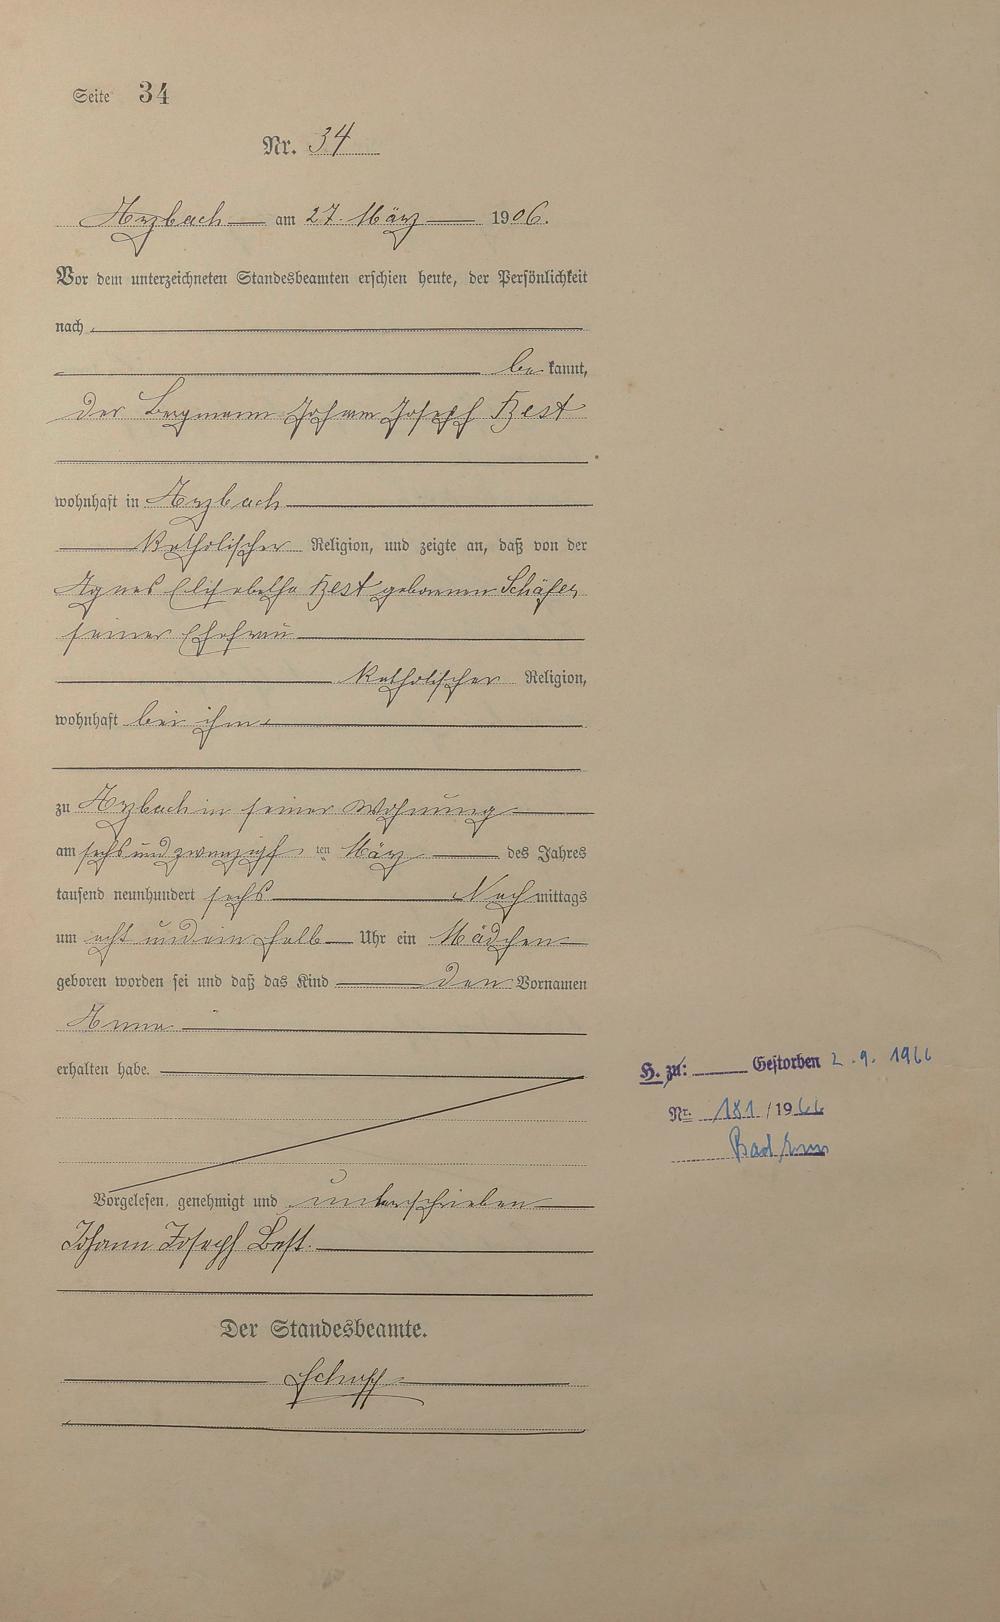 Seite 34
Nr. 34
Arzbach am 27. März 1906.
Vor dem unterzeichneten Standesbeamten erschien heute, der Persönlichkeit
nach
bekannt,
der Bergmann Johann Joseph Best
wohnhaft in Arzbach
katholischer Religion, und zeigte an, daß von der
Agnes Elisabetha Best geborenen Schäfer
seiner Ehefrau
katholischer Religion,
wohnhaft bei ihm
zu Arzbach in seiner Wohnung
am sechs und zwanzigsten März des Jahres
tausend neunhundert sechs Nachmittags
um acht und ein halb Uhr ein Mädchen
geboren worden sei und daß das Kind den Vornamen
Anna
erhalten habe.
H. zu: Gestorben 2.9.1966
Nr. 181/1966
Bad Ems
Vorgelesen, genehmigt und unterschrieben
Johann Joseph Best.
Der Standesbeamte.